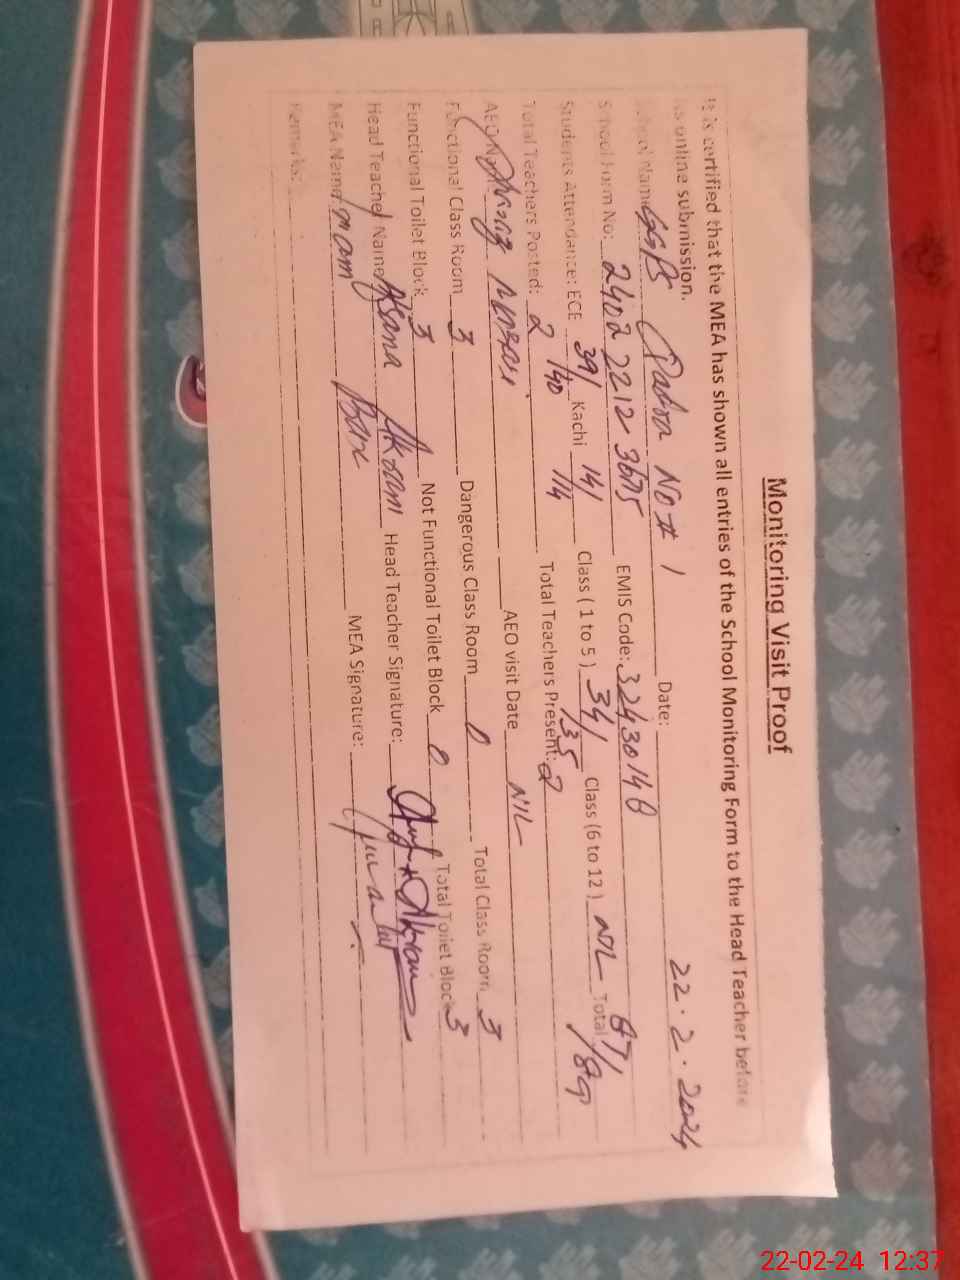 Monitoring Visit Proof
It is certified that the MEA has shown all entries of the School Monitoring Form to the Head Teacher before
its online submission.
School Name GGPS No # 1 Date: 22.2.2024
School Form No: 2402 2212 3675 EMIS Code: 32430148
Students Attendance: ECE 39/40 Kachi 14/14 Class ( 1 to 5 ) 34/35 Class (6 to 12 ) NIL Total 87/89
Total Teachers Posted: 2 Total Teachers Present: 2
AEO Name AEO visit Date NIL
Functional Class Room 3 Dangerous Class Room 0 Total Class Room 3
Functional Toilet Block 3 Not Functional Toilet Block 0 Total Toilet Block 3
Head Teacher Name Akram Head Teacher Signature:
MEA Name Imam Bux MEA Signature:
Remarks:
22-02-24 12:37